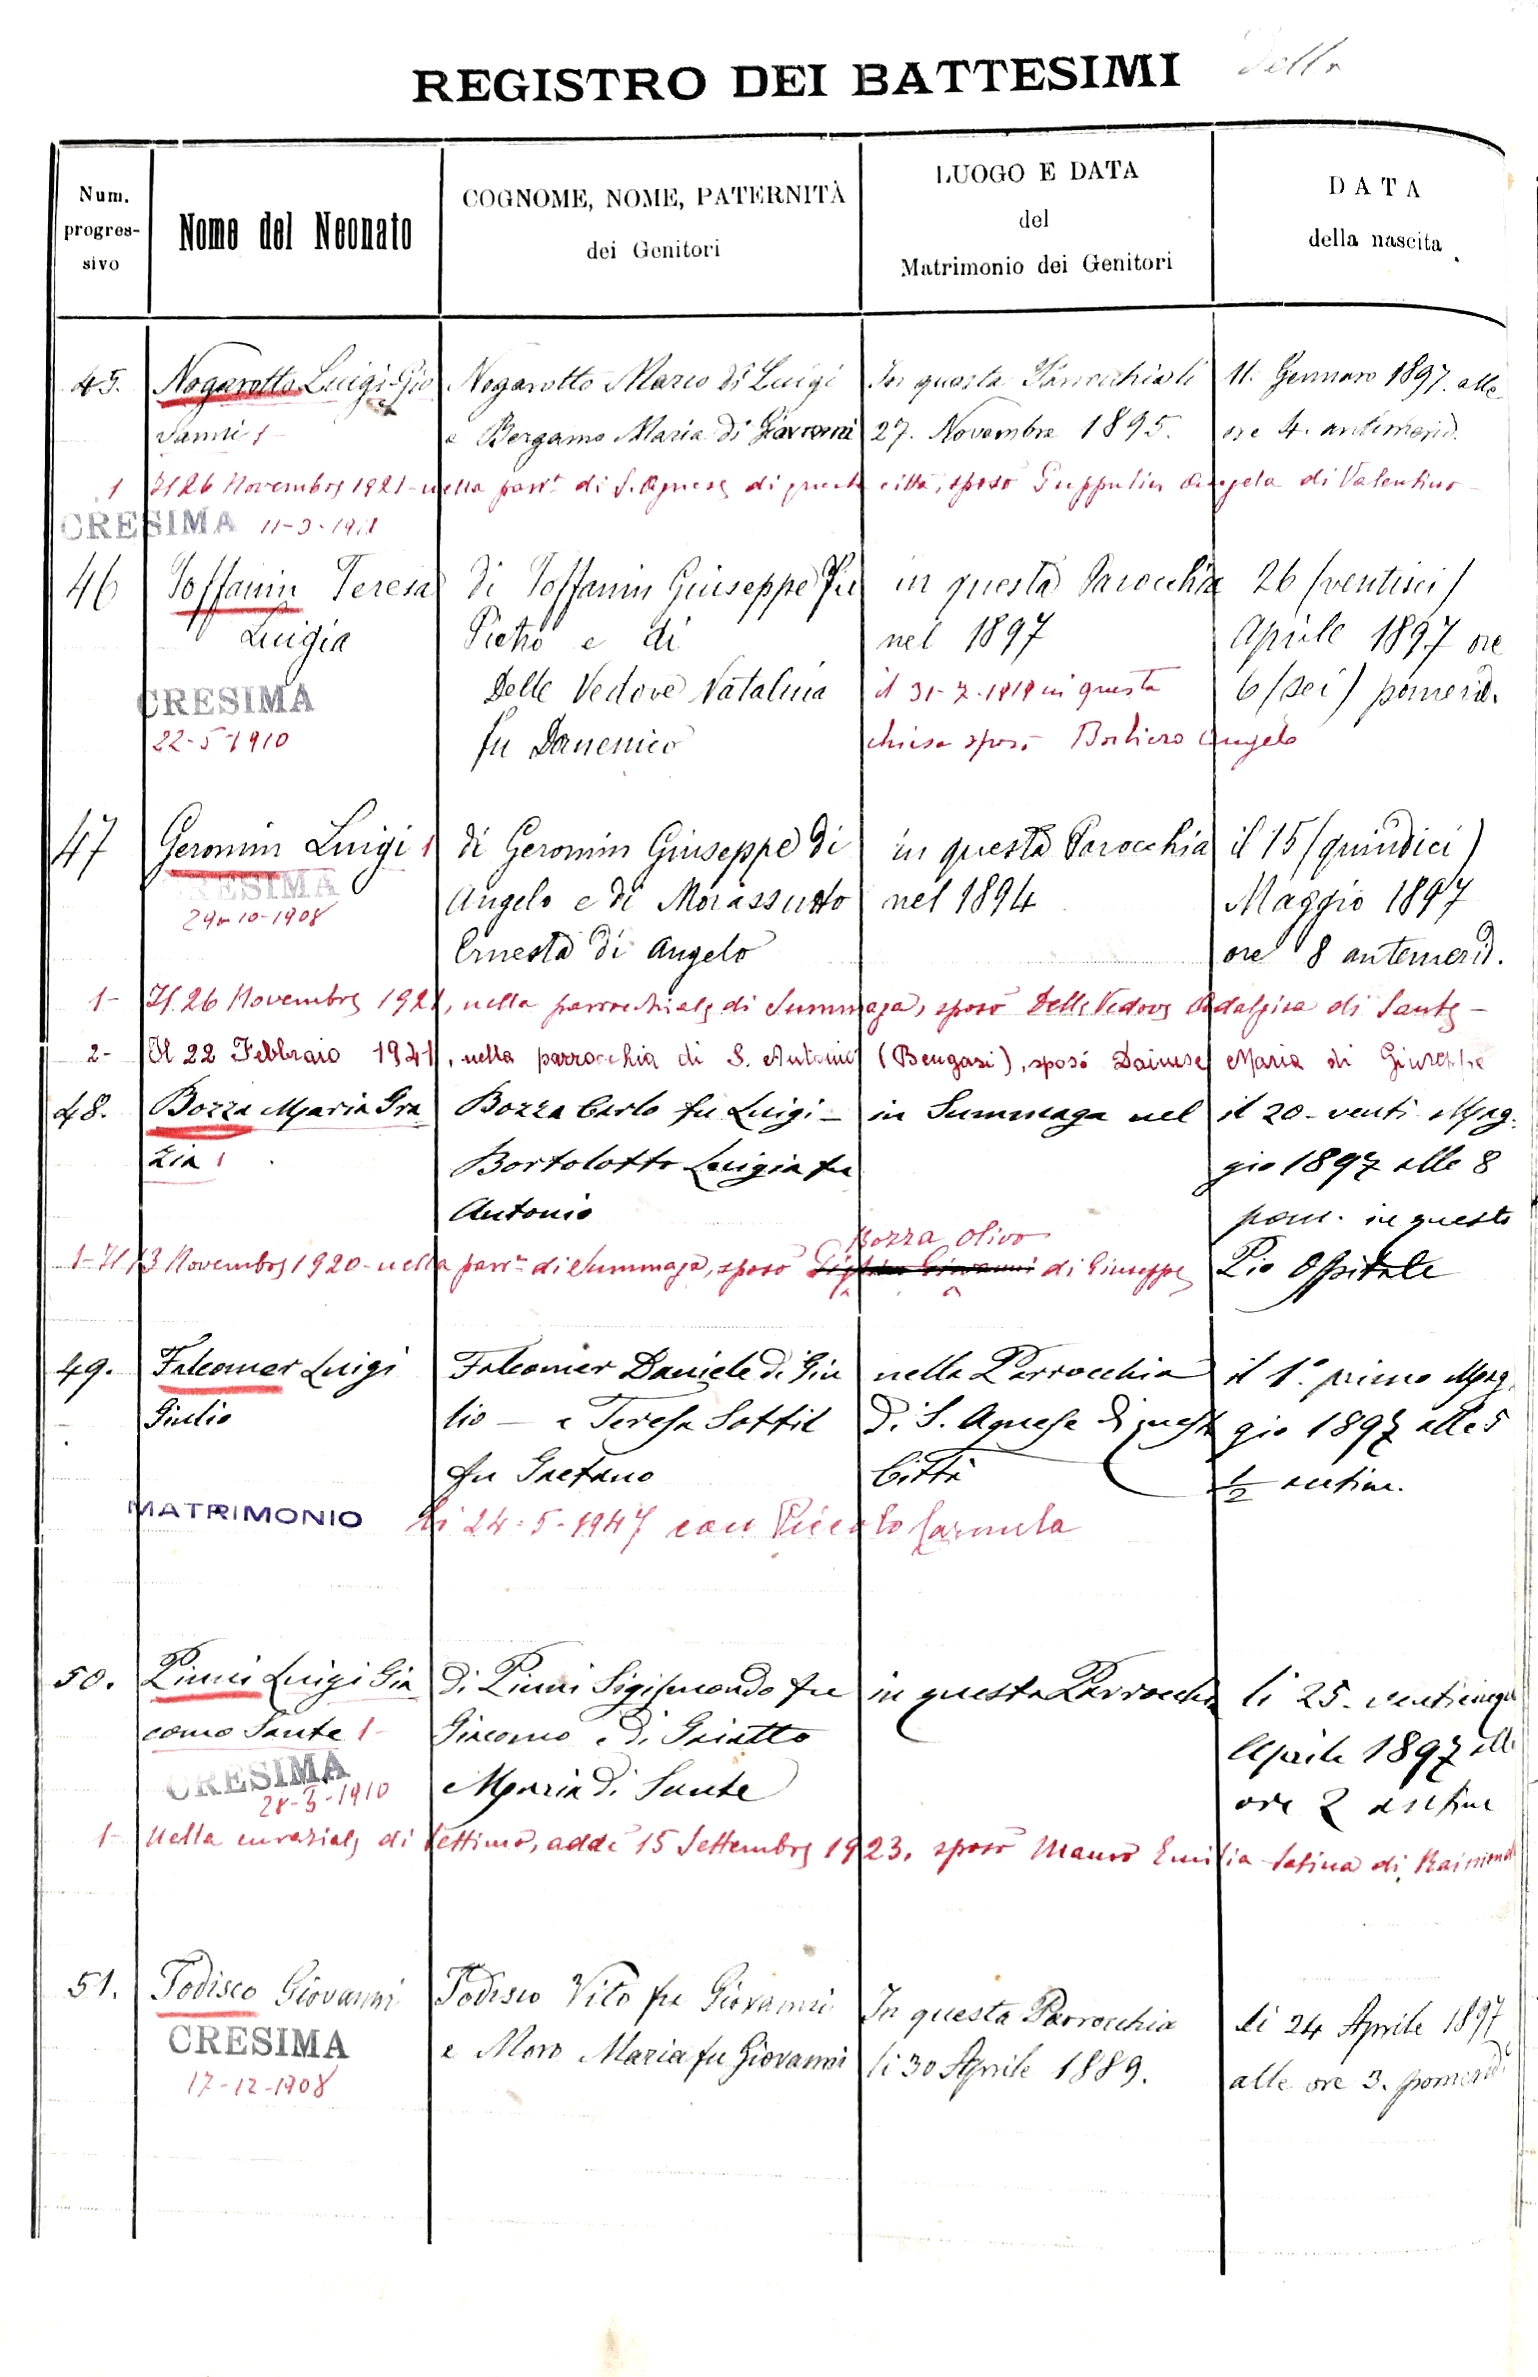 Della
REGISTRO DEI BATTESIMI
Num. progres- sivo
Nome del Neonato
COGNOME, NOME, PATERNITÀ
dei Genitori
LUOGO E DATA
del
Matrimonio dei Genitori
DATA
della nascita
45. Nogarotto Luigi Gio Nogarotto Marco di Luigi In questa Parrocchia li 11. Gennaro 1897. alle
vanni 1- e Bergamo Maria di Giovanni 27. Novembre 1895. ore 4. antimerid.
1 Il 26 Novembre 1921 - nella parr. di S. Agnese di questa città, sposò Angela di Valentino -
CRESIMA
46 Toffanin Teresa di Toffanin Giuseppe fu in questa Parocchia 26 (ventisei)
Luigia Pietro e di nel 1897 Aprile 1897 ore
Delle Vedove Natalina il 31-7-1919 in questa 6 (sei) pomerid.
CRESIMA
22-5-1910 fu Domenico chiesa sposò Angelo
47 Geromin Luigi 1 di Geromin Giuseppe di in questa Parocchia il 15 (quindici)
CRESIMA
Angelo e di Morassutto nel 1894 Maggio 1897
10-1908
Ernesta di Angelo ore 8 antemerid.
1- Il 26 Novembre 1921, nella parrocchiale di Summaga, sposò Delle Vedove Adalgisa di Sante -
2- Il 22 Febbraio 1941, nella parrocchia di S. Antonio (Bengasi), sposò Dainese Maria di Giuseppe
48. Bozza Maria Gra Bozza Carlo fu Luigi - in Summaga nel il 20 - venti Mag.
zia 1 Bortolotto Luigia fu gio 1897 alle 8
Antonio pom. in questo
Bozza Olivo
1- Il 13 Novembre 1920 - nella parr. di Summaga, sposò Giovanni di Giuseppe Pio Ospitale
49. Falcomer Luigi Falcomer Daniele di Giu nella Parrocchia il 1° primo Mag.
Giulio lio - e Teresa Sottil di S. Agnese di questa gio 1897 alle 5
fu Gaetano Città 1/2 antim.
MATRIMONIO li 24-5-1947 con Piccolo Carmela
50. Pinni Luigi Gia di Pinni Sigismondo fu in questa Parrocchia li 25. venticinque
como Sante 1- Giacomo e di Aprile 1897 alle
CRESIMA Maria di Sante ore 2 antim
1- Nella curaziale di Settimo, addì 15 Settembre 1923, sposò Mauro Emilia di Raimondo
51. Todisco Giovanni Todisco Vito fu Giovanni In questa Parrocchia li 24 Aprile 1897
CRESIMA e Moro Maria fu Giovanni li 30 Aprile 1889. alle ore 3. pomerid.
17-12-1908